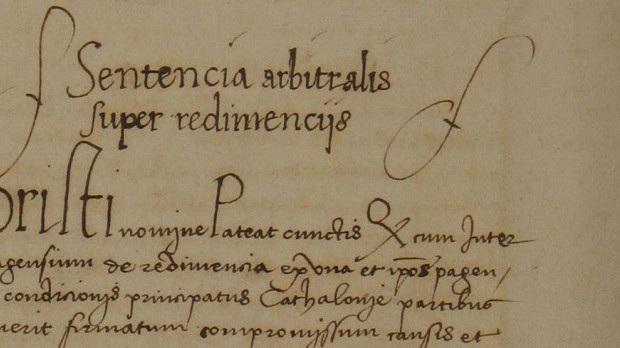 Sentencia arbitralis
super redimencijs
risti nomine Pateat cunctis Q cum Inter
agensium de redimencia ex vna et ip̄os pagen
condicionis principatus Cathalonie partibus
erit firmatum compromissum causis et